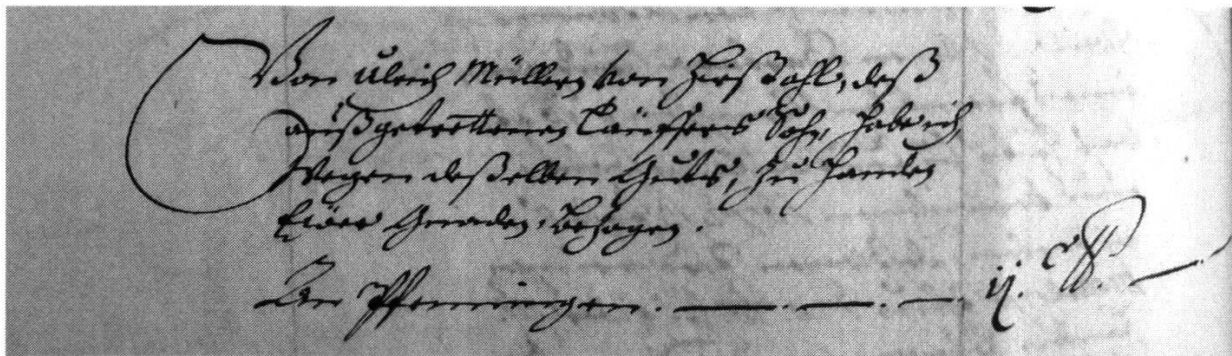 Von Ulrich Müllern von Hirßahl, deß
außgetrettenen Täuffers Sohn, habe ich,
Wegen deßelben Guts, zu handen
Eüwer Gnaden, bezogen.
An Pfenningen. — . — . — ij. C ℔. —